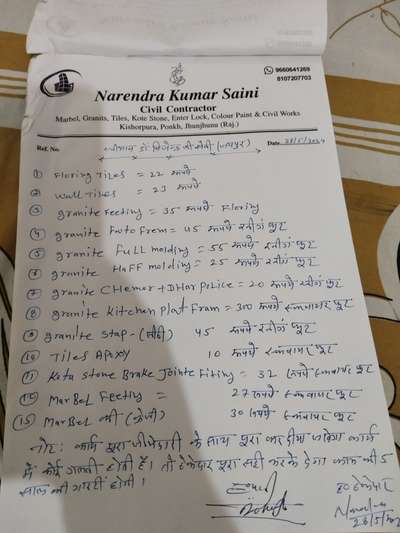 9660641269
8107207703
Narendra Kumar Saini
Civil Contractor
Marbel, Granits, Tiles, Kote Stone, Enter Lock, Colour Paint & Civil Works
Kishorpura, Ponkh, Jhunjhunu (Raj.)
Ref. No. Date 28/5/2024
① Floring Tiles = 22 रूपये
② Wall Tiles = 23 रूपये
③ granite Feeting = 35 रूपये Floring
④ granite Foto Frem = 45 रूपये रनींग फुट
⑤ granite Full molding = 55 रूपये रनींग फुट
⑥ granite Haff molding = 25 रूपये रनींग फुट
⑦ granite CHemer + DHar Police = 20 रूपये रनींग फुट
⑧ granite Kitchen Plat Fram = 300 रूपये स्क्वायर फुट
⑨ granite Stap - (सीढी) 45 रूपये रनींग फुट
⑩ Tiles APAXY 10 रूपये स्क्वायर फुट
⑪ Kota Stone Brake Jointe Fiting = 32 रूपये स्क्वायर फुट
⑫ MarBel Feeting = 27 रूपये स्क्वायर फुट
⑬ MarBel की 30 रूपये स्क्वायर फुट
नोट: कार्य पूरा जीमेदारी के साथ पूरा कर दीया जायेगा कार्य
में कोई गलती होती है। तो ठेकेदार पूरा सही करके देगा काम की 5
साल की गारंटी होगी।
ठेकेदार